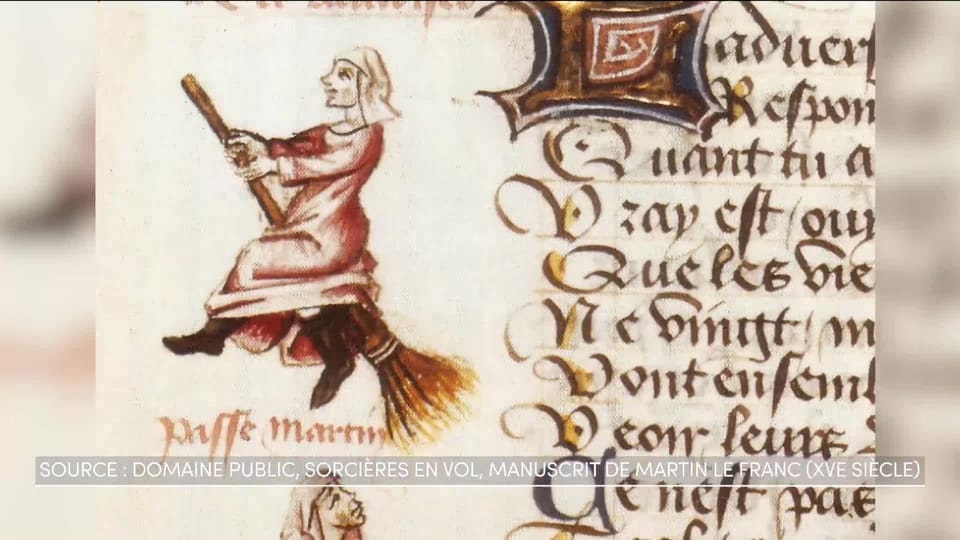 aduers
Respon
Quant tu a
Vray est / ouy
Que les vie
Ne vingt / m
Vont ensem
passe martin
Veoir leurs
SOURCE : DOMAINE PUBLIC, SORCIÈRES EN VOL, MANUSCRIT DE MARTIN LE FRANC (XVE SIÈCLE)
Ce nest pas